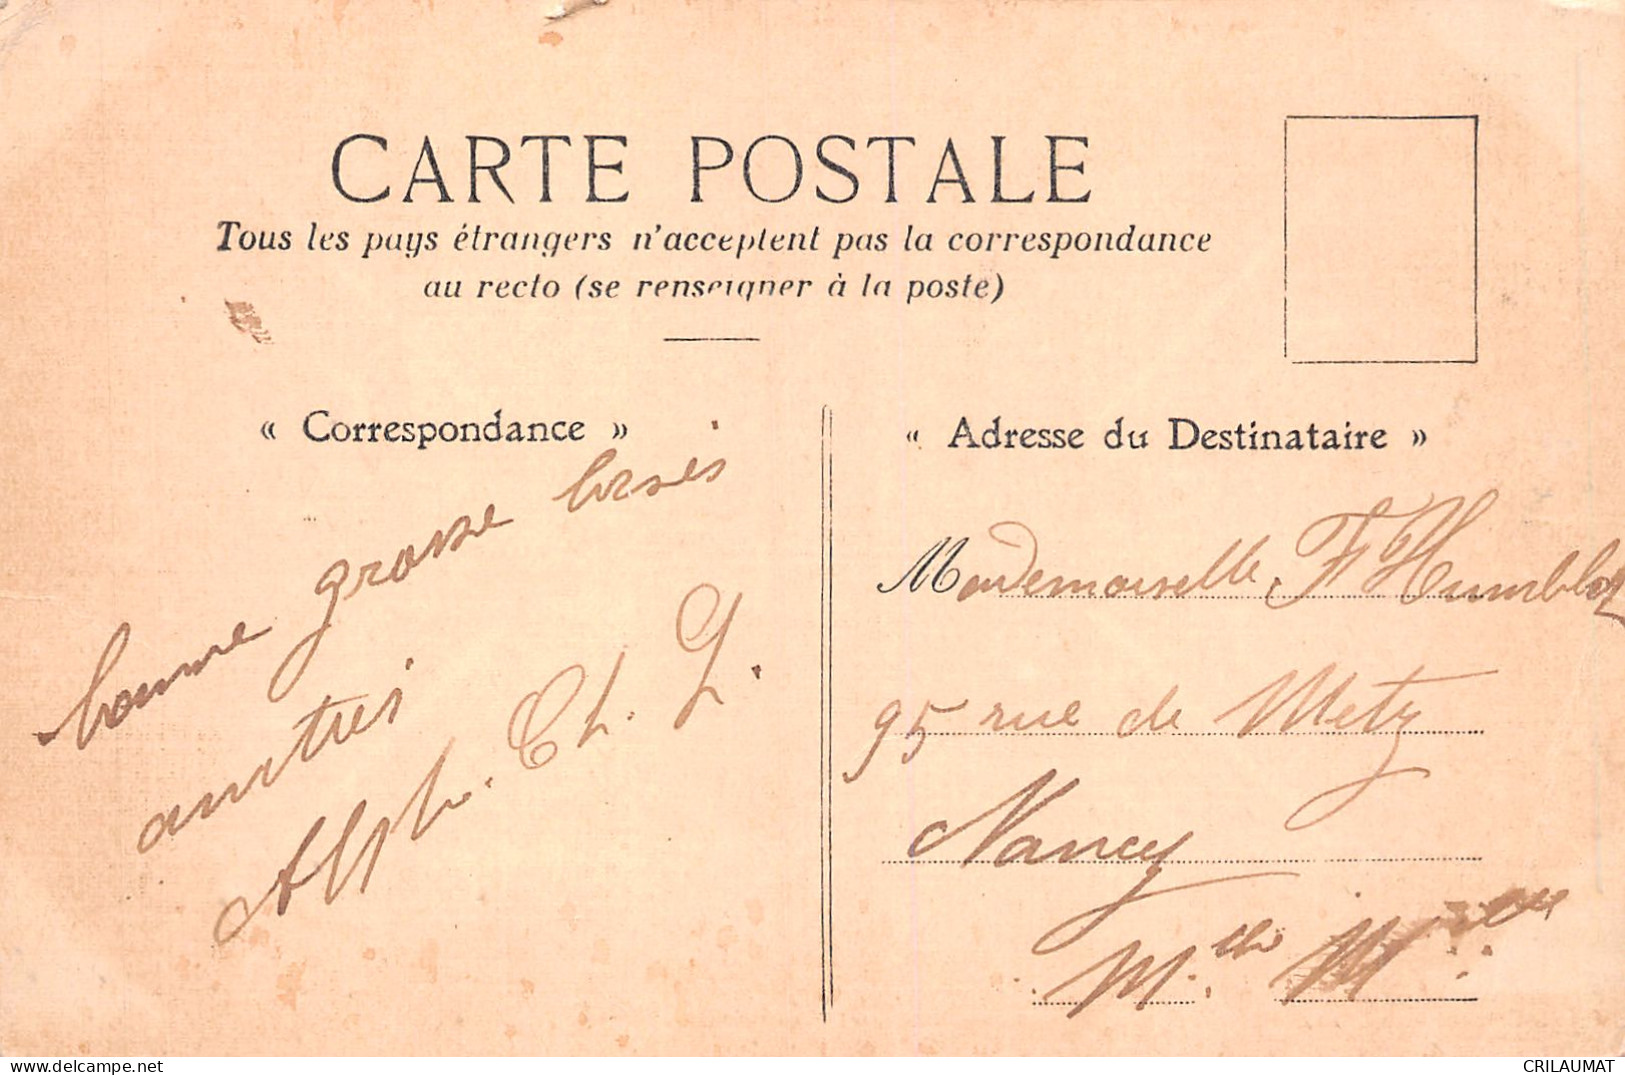 CARTE POSTALE
Tous les pays étrangers n'acceptent pas la correspondance
au recto (se renseigner à la poste)
« Correspondance »
bonne grosse bises
Alph. Ch. L.
« Adresse du Destinataire »
Mademoiselle F Humblot
95 rue de Metz
Nancy
M.elle
delcampe.net
CRILAUMAT